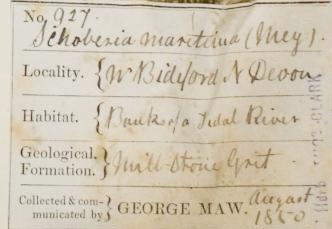 No 927.
Schoberia maritima (Mey).
Locality. { Nr Bideford N Devon
Habitat. { Banks of a Tidal River
Geological Formation. } Mill Stone Grit
Collected & communicated by } GEORGE MAW. August 1850